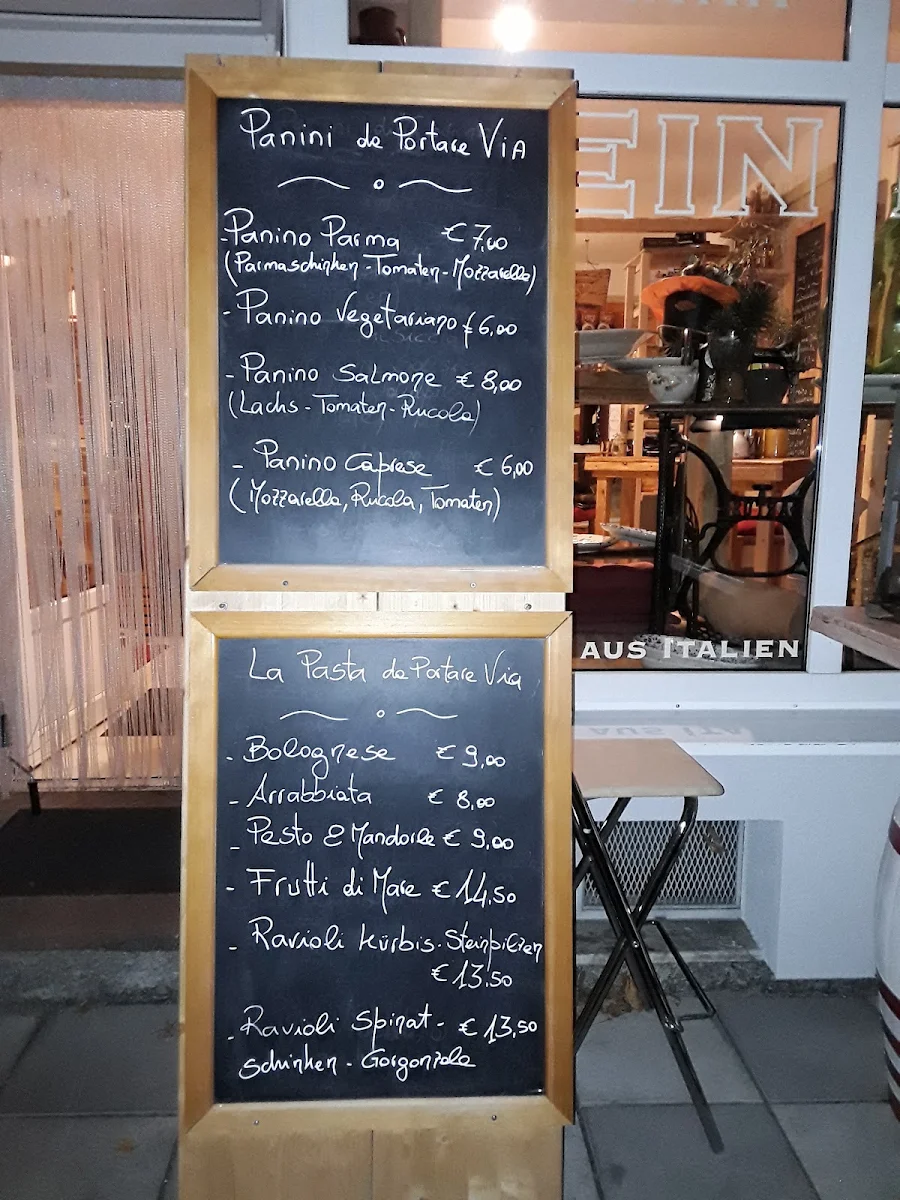 Panini da Portare Via
- Panino Parma € 7,00
(Parmaschinken - Tomaten - Mozzarella)
- Panino Vegetariano € 6,00
- Panino Salmone € 8,00
(Lachs - Tomaten - Rucola)
- Panino Caprese € 6,00
(Mozzarella, Rucola, Tomaten)
La Pasta da Portare Via
- Bolognese € 9,00
- Arrabbiata € 8,00
- Pesto & Mandorle € 9,00
- Frutti di Mare € 14,50
- Ravioli Kürbis - Steinpilzen
€ 13,50
- Ravioli Spinat - € 13,50
Schinken - Gorgonzola
EIN
AUS ITALIEN